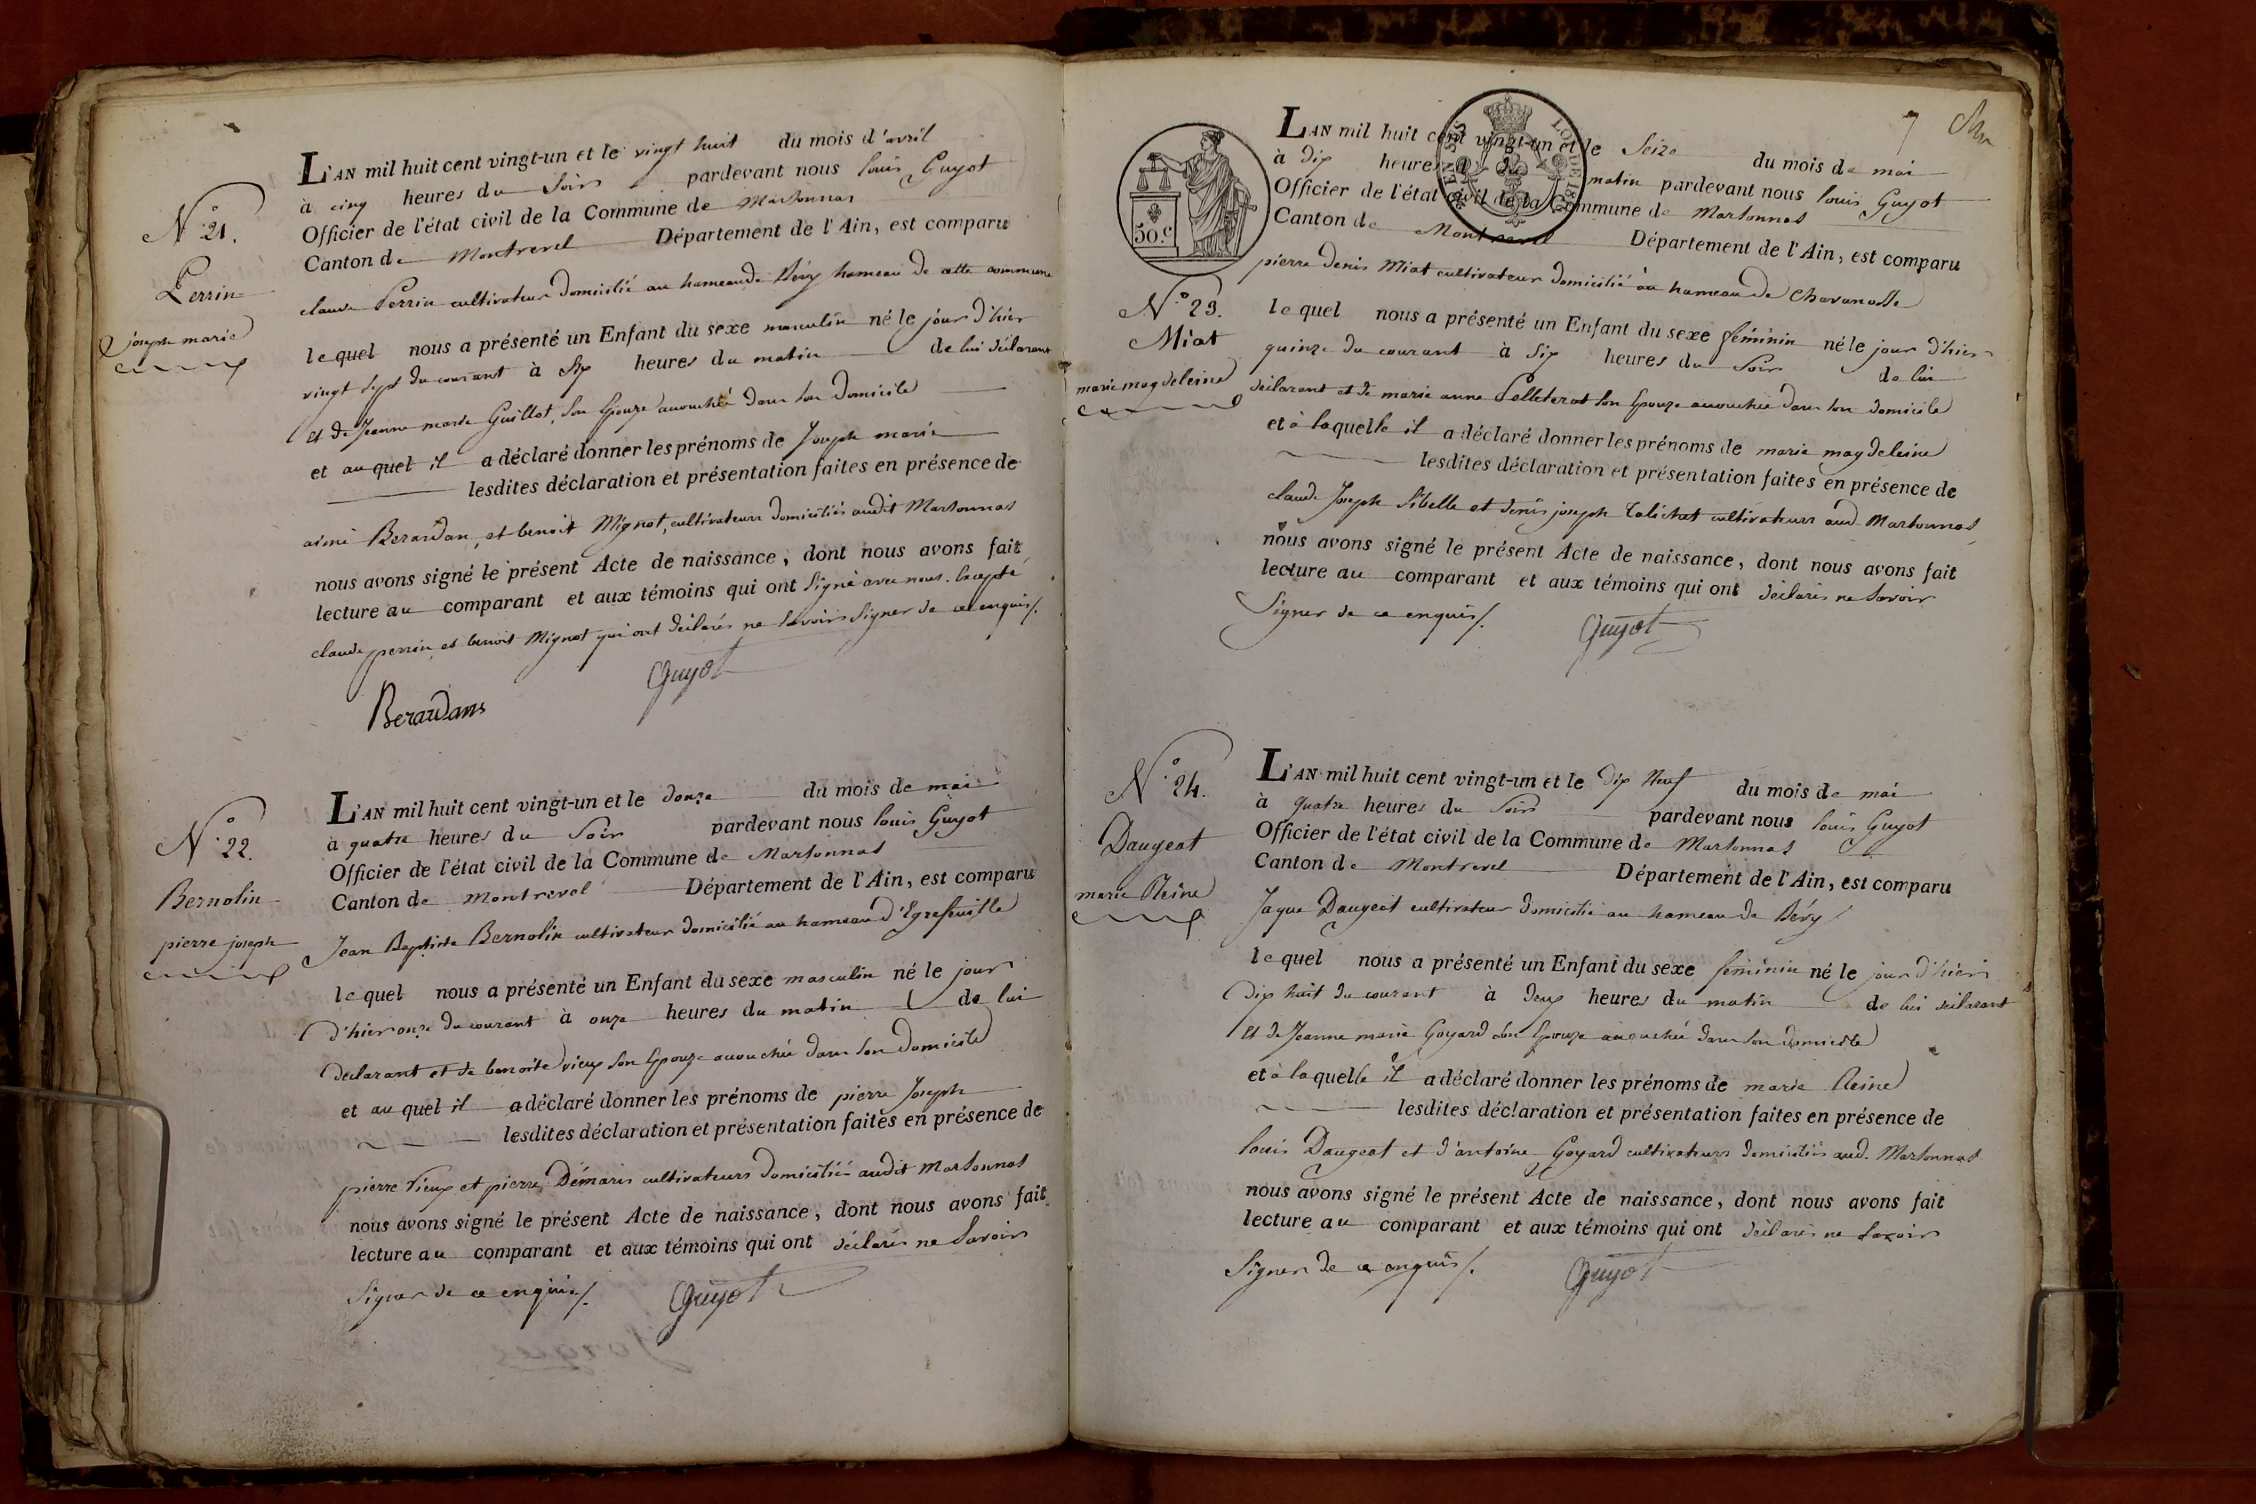 N.o 21.
Perrin
joseph marie
L'AN mil huit cent vingt-un et le vingt huit du mois d'avril
à cinq heures du Soir pardevant nous louis Guyot
Officier de l'état civil de la Commune de Marsonnas
Canton de Montrevel Département de l'Ain, est comparu
claude Perrin cultivateur domicilié au hameau de Bévy hameau de cette commune
lequel nous a présenté un Enfant du sexe masculin né le jour d'hier
vingt Sept du courant à Six heures du matin de lui déclarant
et de Jeanne marie Guillot, Son Epouze accouchée dans son domicile
et auquel il a déclaré donner les prénoms de Joseph marie
lesdites déclaration et présentation faites en présence de
aimé Beraudan, et benoit Mignot, cultivateurs domiciliés audit Marsonnas
nous avons signé le présent Acte de naissance, dont nous avons fait
lecture au comparant et aux témoins qui ont Signé avec nous. Excepté
claude perrin et benoit Mignot qui ont déclarés ne Savoir Signer de ce enquis/.
Guyot
Beraudans
N.o 22.
Bernolin
pierre joseph
L'AN mil huit cent vingt-un et le douze du mois de mai
à quatre heures du Soir pardevant nous louis Guyot
Officier de l'état civil de la Commune de Marsonnas
Canton de Montrevel Département de l'Ain, est comparu
Jean Baptiste Bernolin cultivateur domicilié au hameau d'Egrefeuille
lequel nous a présenté un Enfant du sexe masculin né le jour
d'hier onze du courant à onze heures du matin de lui
déclarant et de benoite vieux son Epouze accouchée dans son domicile
et auquel il a déclaré donner les prénoms de pierre Joseph
lesdites déclaration et présentation faites en présence de
pierre Vieux et pierre Démaris cultivateurs domiciliés audit Marsonnas
nous avons signé le présent Acte de naissance, dont nous avons fait
lecture au comparant et aux témoins qui ont déclarés ne Savoir
Signer de ce enquis/.
Guyot
7
50.c
LOI DE 181
N.o 23.
Miat
marie magdeleine
L'AN mil huit cent vingt-un et le Seize du mois de mai
à dix heures du matin pardevant nous louis Guyot
Officier de l'état civil de la Commune de Marsonnas
Canton de Montrevel Département de l'Ain, est comparu
pierre denis Miat cultivateur domicilié au hameau de Chavanosse
lequel nous a présenté un Enfant du sexe féminin né le jour d'hier
quinze du courant à Six heures du Soir de lui
déclarant et de marie anne Pelleterat son Epouze accouchée dans son domicile
et à laquelle il a déclaré donner les prénoms de marie magdeleine
lesdites déclaration et présentation faites en présence de
claude Joseph Sibelle et denis joseph Calichat cultivateurs aud. Marsonnas
nous avons signé le présent Acte de naissance, dont nous avons fait
lecture au comparant et aux témoins qui ont déclarés ne Savoir
Signer de ce enquis/.
Guyot
N.o 24.
Daugeat
marie Reine
L'AN mil huit cent vingt-un et le dix Neuf du mois de mai
à quatre heures du Soir pardevant nous louis Guyot
Officier de l'état civil de la Commune de Marsonnas
Canton de Montrevel Département de l'Ain, est comparu
Jaque Daugeat cultivateur domicilié au hameau de Bévy
lequel nous a présenté un Enfant du sexe féminin né le jour d'hier
dix huit du courant à deux heures du matin de lui déclarant
et de Jeanne marie Goyard son Epouze accouchée dans son domicile
et à laquelle il a déclaré donner les prénoms de marie Reine
lesdites déclaration et présentation faites en présence de
louis Daugeat et d'antoine Goyard cultivateurs domiciliés aud. Marsonnas
nous avons signé le présent Acte de naissance, dont nous avons fait
lecture au comparant et aux témoins qui ont déclarés ne Savoir
Signer de ce enquis/.
Guyot